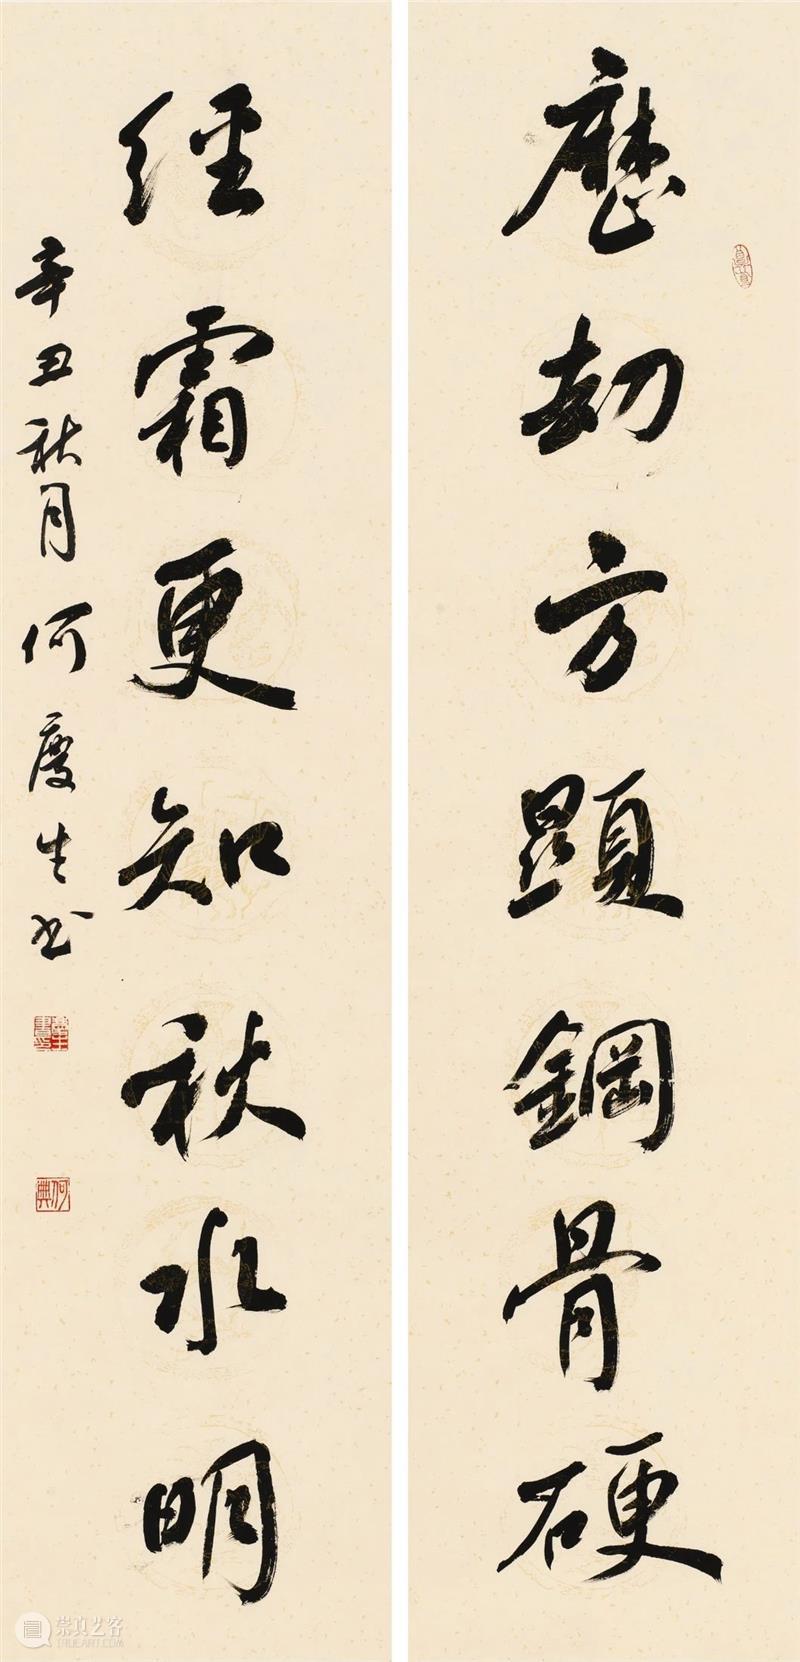 歷劫方顯鋼骨硬
經霜更知秋水明
辛丑秋月何慶生书
何典
崇真艺客
TRUEART.COM